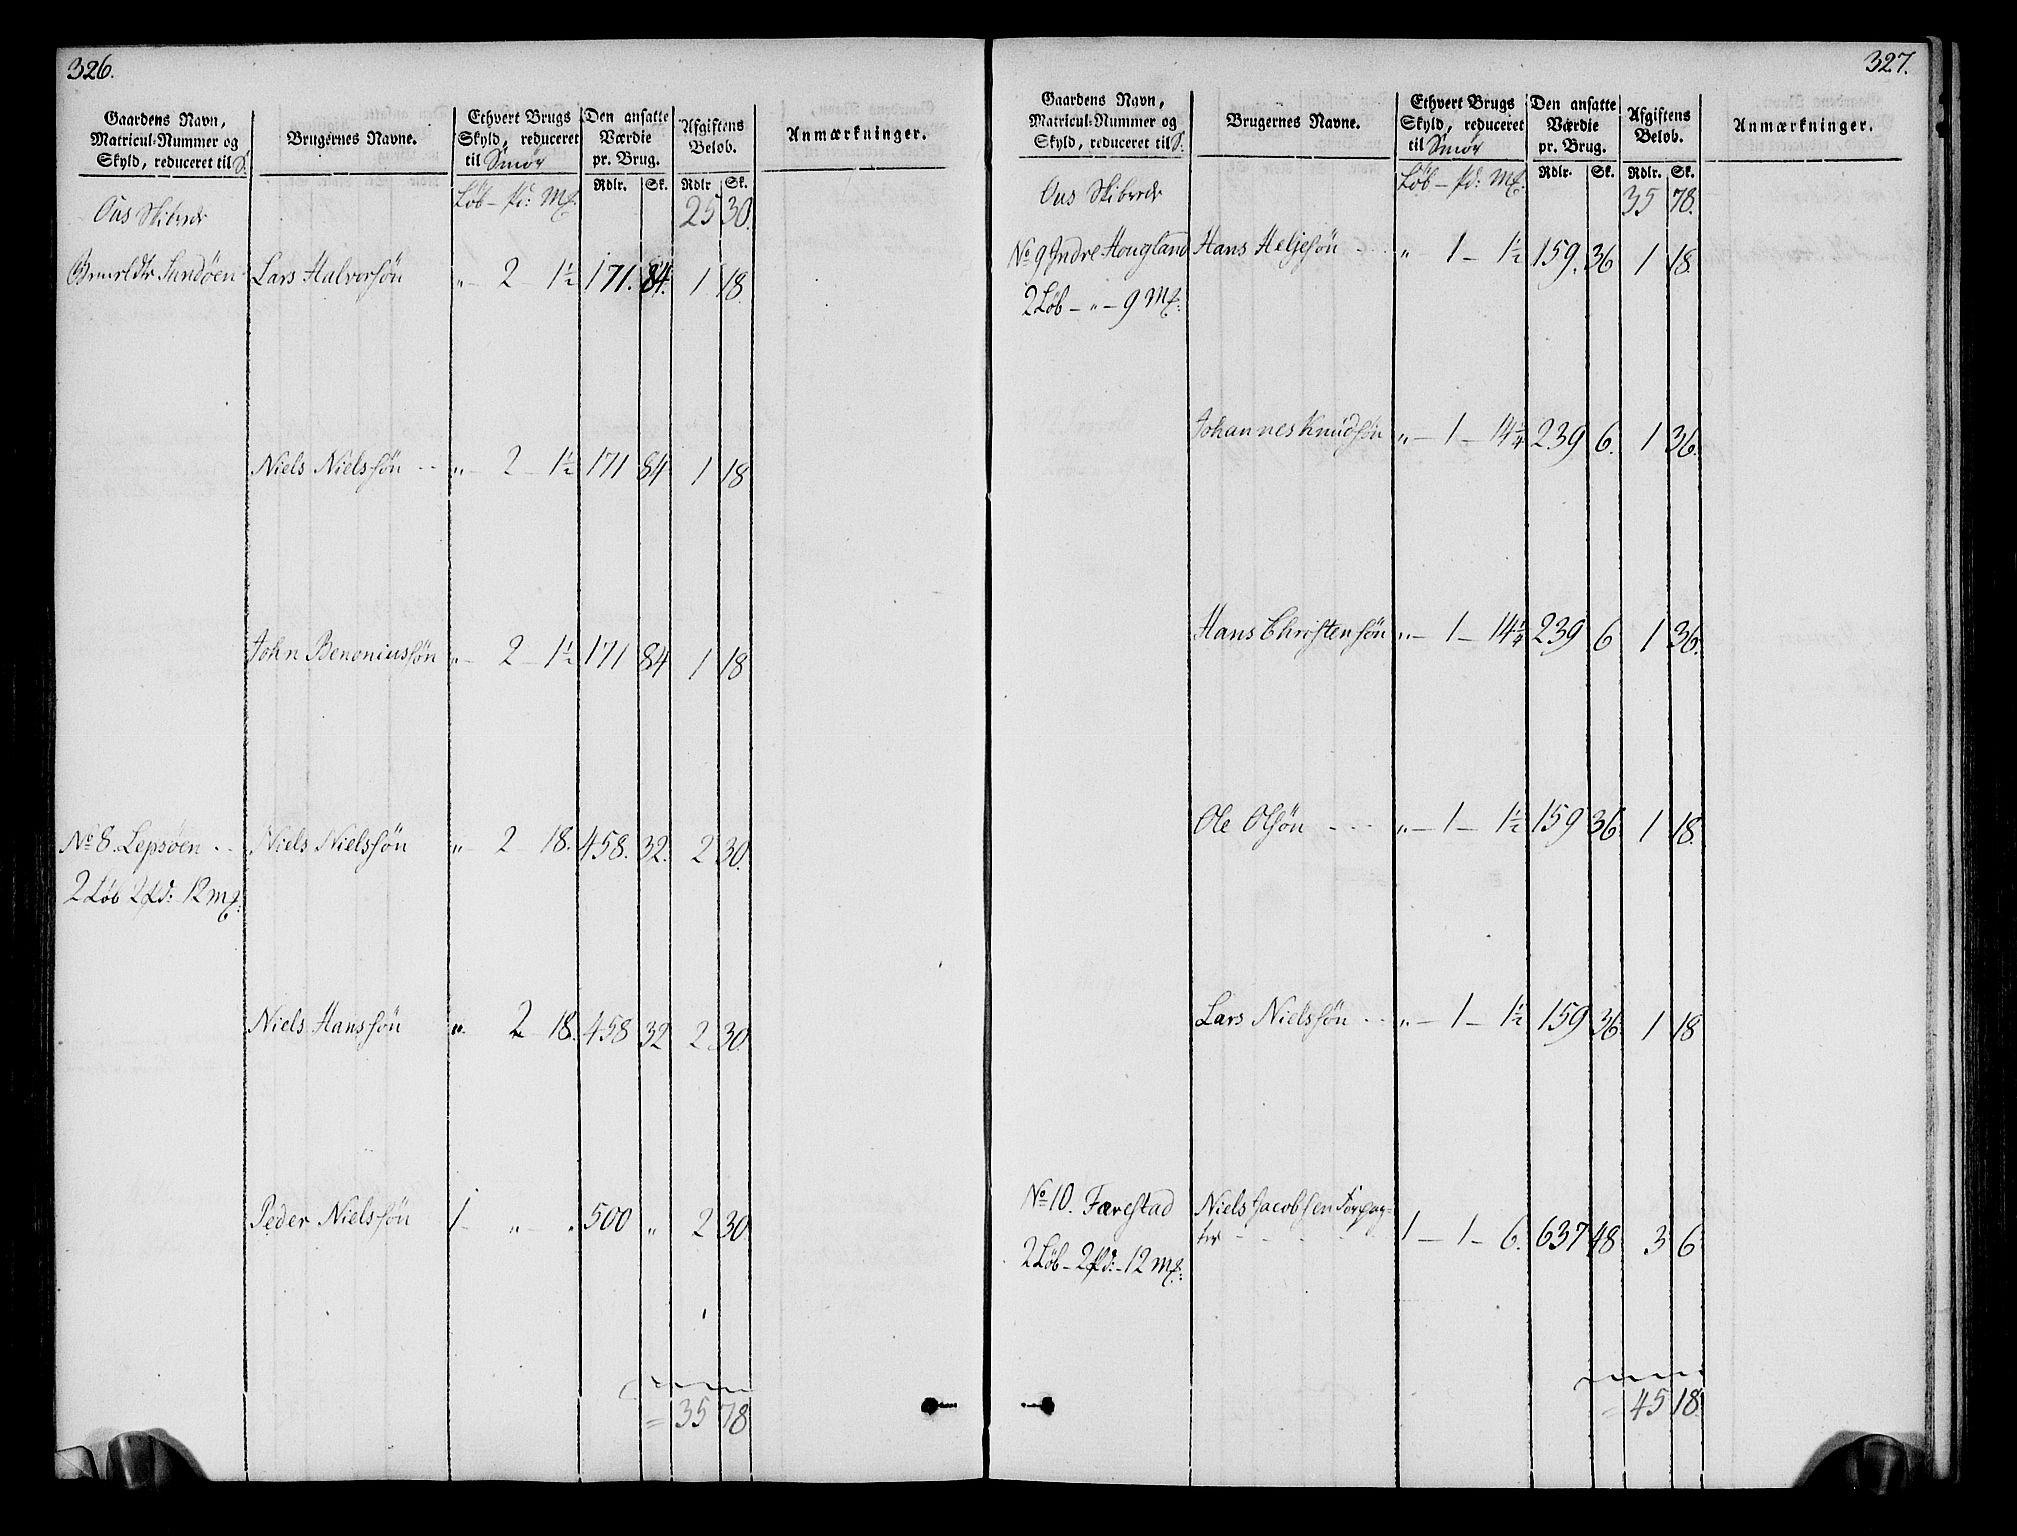 326.
Gaardens Navn, Matricul-Nummer og Skyld, reduceret til S.
Brugernes Navne.
Ethvert Brugs Skyld, reduceret til Smör
Den ansatte Værdie pr. Brug.
Afgiftens Beløb.
Anmærkninger.
Rdlr. Sk. Rdlr Sk.
Ous Skibrede Løb - pd: Mk: 25 30.
Sundøen Lars Halvorsøn „ - 2 - 1½ 171. 84. 1 18.
Niels Nielssøn - - „ - 2 - 1½ 171 84 1 18
John Benoniussøn „ - 2 - 1½ 171 84 1 18
No 8. Lepsøen - - Niels Nielssøn „ - 2 - 18. 458. 32. 2 30.
2 Løb 2 pd: 12 Mk:
Niels Hanssøn „ - 2 - 18. 458 32 2 30.
Peder Nielssøn 1 - „ - „ 500 „ 2 30
= 35 78
327.
Gaardens Navn, Matricul-Nummer og Skyld, reduceret til S.
Brugernes Navne.
Ethvert Brugs Skyld, reduceret til Smör
Den ansatte Værdie pr. Brug.
Afgiftens Beløb.
Anmærkninger.
Rdlr. Sk. Rdlr. Sk.
Ous Skibrede Løb - pd: Mk: 35 78.
No 9 Indre Hougland Hans Heljesøn - - „ - 1 - 1½ 159. 36 1 18.
2 Løb - „ - 9 Mk:
Johannes Knudsøn „ - 1 - 14¼ 239 6. 1 36.
Hans Christensøn „ - 1 - 14¼ 239 6 1 36.
Ole Olsøn - - - „ - 1 - 1½ 159 36 1 18.
Lars Nielssøn - - „ - 1 - 1½ 159 36 1 18
No 10. Færestad Niels Jacobsen Forpag=
2 Løb - 2 pd: - 12 Mk: ter - - - - 1 - 1 - 6. 637 48 3 6
= 45 18.